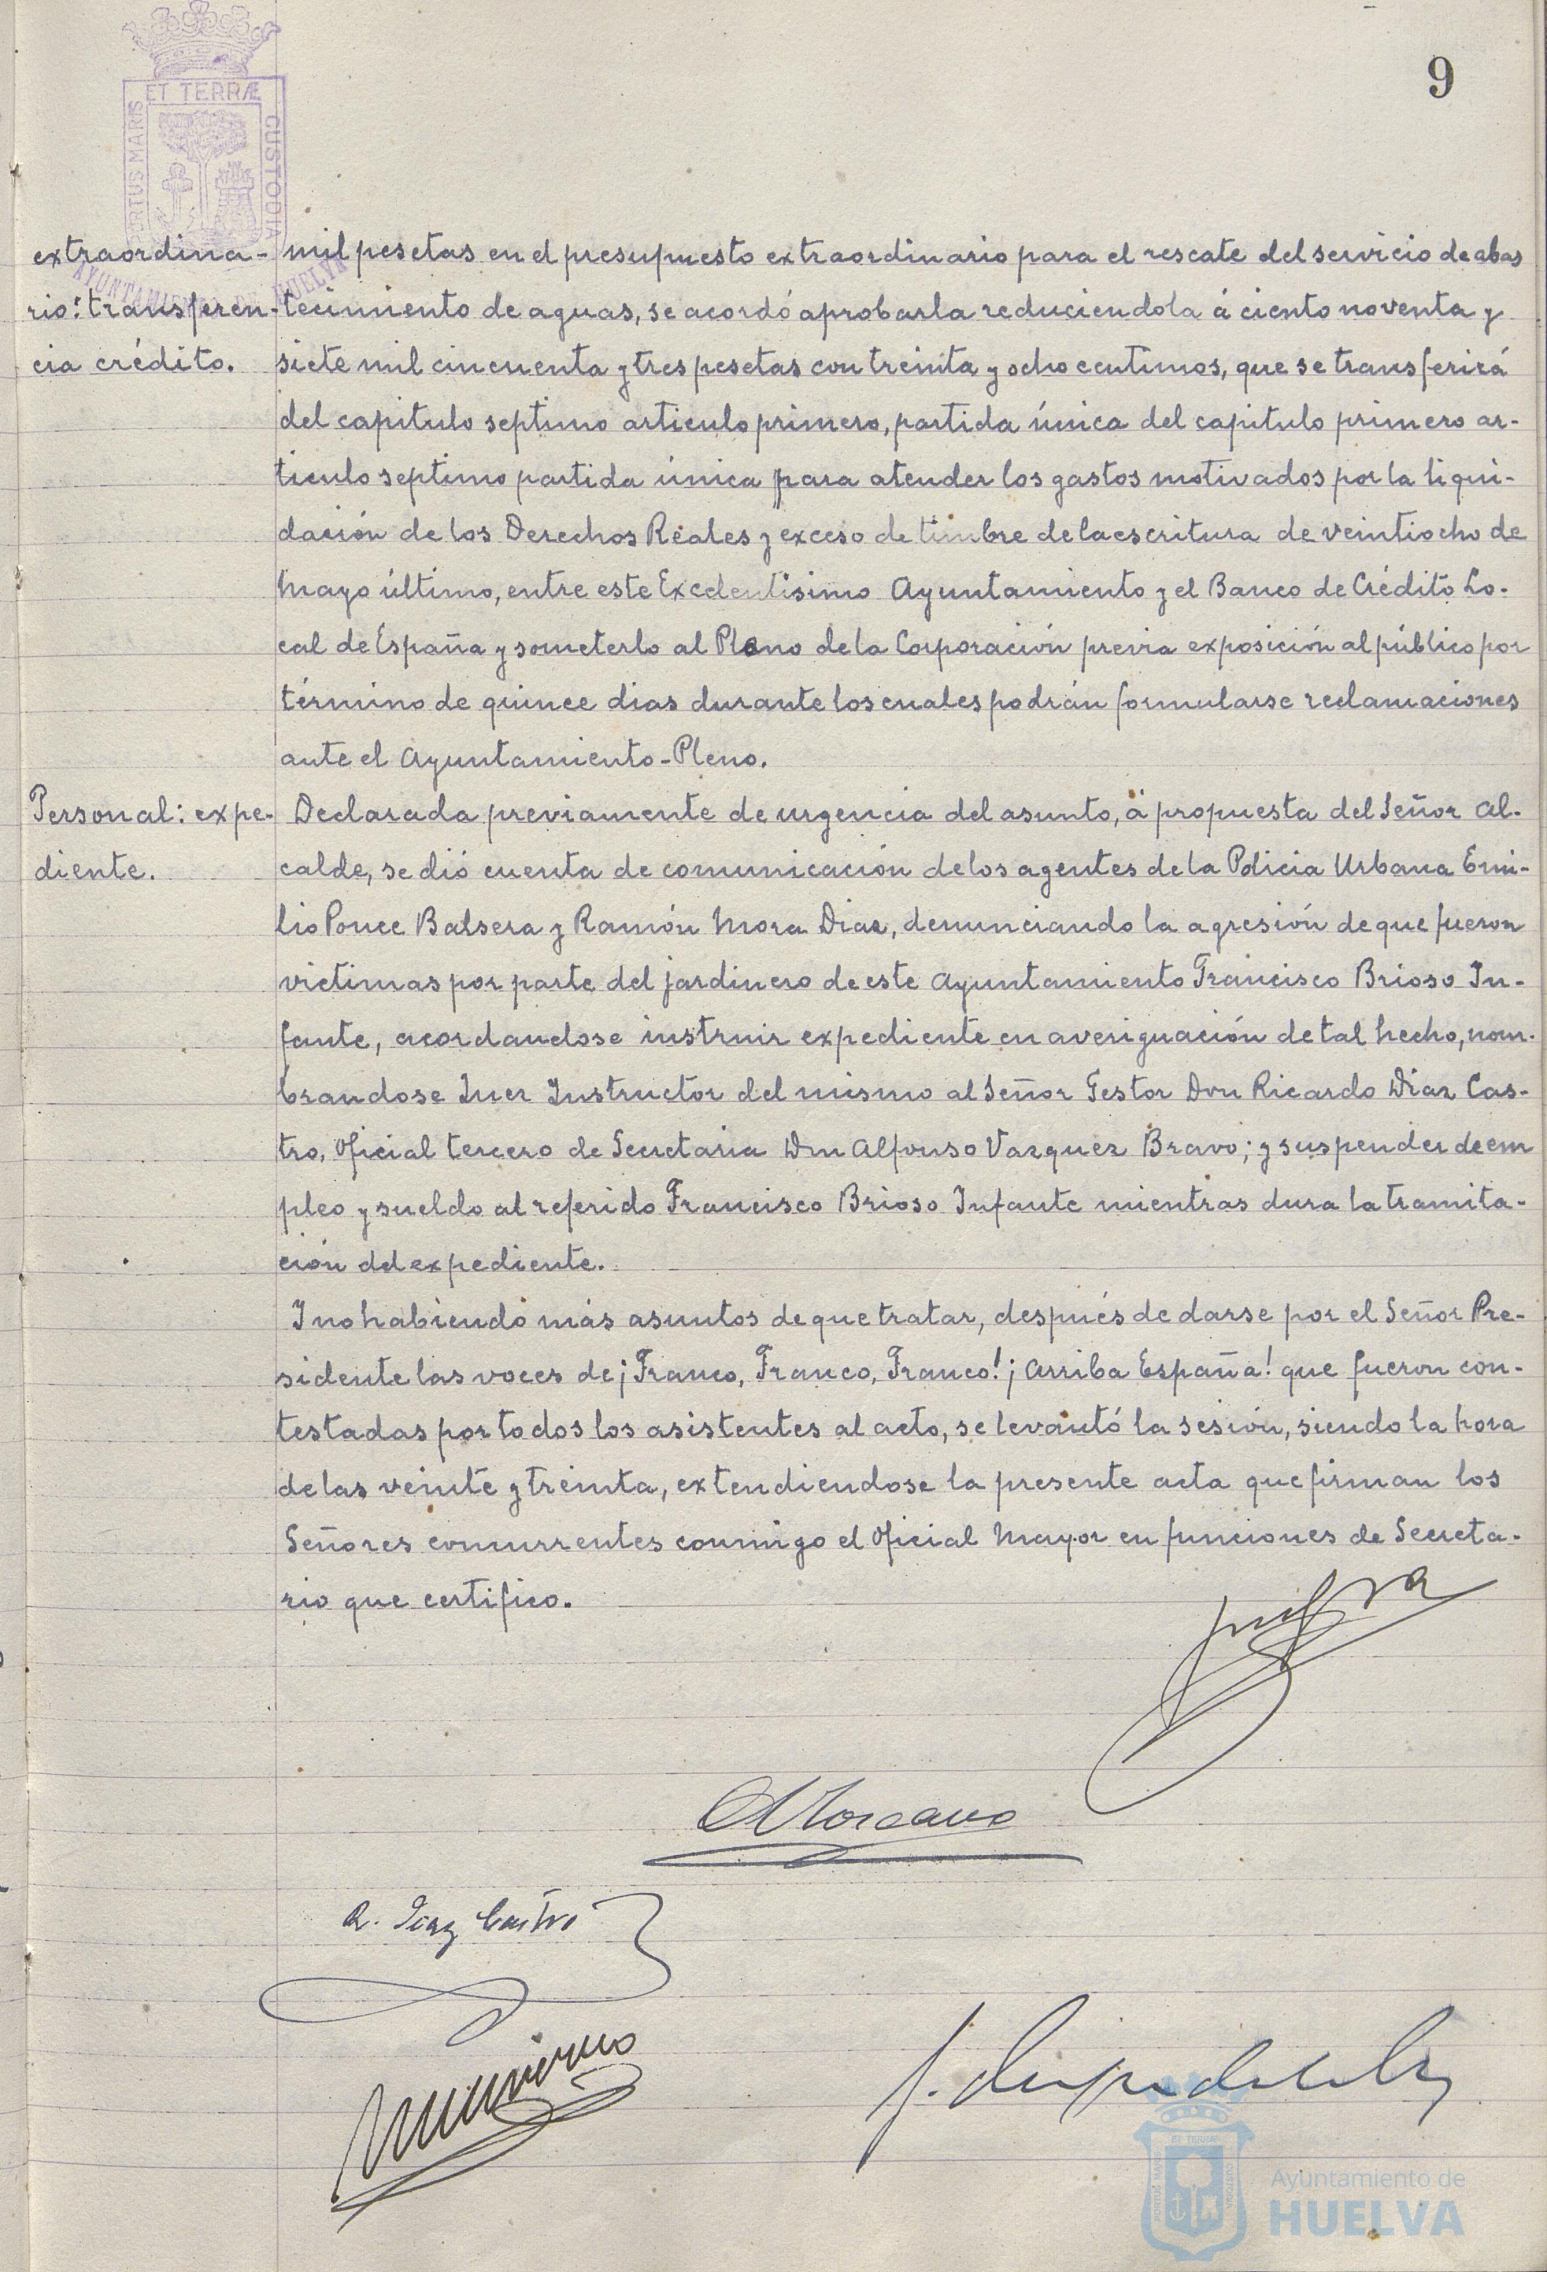 9
ET TERRÆ
PORTUS MARIS
CUSTODIA
AYUNTAMIENTO DE HUELVA
extraordina-
rio: transferen-
cia crédito.
mil pesetas en el presupuesto extraordinario para el rescate del servicio de abas
tecimiento de aguas, se acordó aprobarla reduciendola á ciento noventa y
siete mil cincuenta y tres pesetas con treinta y ocho centimos, que se transferirá
del capitulo septimo articulo primero, partida única del capitulo primero ar-
ticulo septimo partida única para atender los gastos motivados por la liqui-
dación de los Derechos Reales y exceso de timbre de la escritura de veintiocho de
Mayo último, entre este Excelentisimo Ayuntamiento y el Banco de Crédito Lo-
cal de España y someterlo al Pleno de la Corporación previa exposición al público por
término de quince dias durante los cuales podrán formularse reclamaciones
ante el Ayuntamiento-Pleno.
Personal: expe-
diente.
Declarada previamente de urgencia del asunto, á propuesta del Señor Al-
calde, se dió cuenta de comunicación de los agentes de la Policia Urbana Emi-
lio Ponce Balsera y Ramón Mora Diaz, denunciando la agresión de que fueron
victimas por parte del jardinero de este Ayuntamiento Francisco Brioso In-
fante, acordandose instruir expediente en averiguación de tal hecho, nom-
brandose Juez Instructor del mismo al Señor Gestor Don Ricardo Diaz Cas-
tro, Oficial tercero de Secretaria Don Alfonso Vazquez Bravo; y suspender de em
pleo y sueldo al referido Francisco Brioso Infante mientras dura la tramita-
ción del expediente.
Y no habiendo más asuntos de que tratar, después de darse por el Señor Pre-
sidente las voces de ¡Franco, Franco, Franco! ¡Arriba España! que fueron con-
testadas por todos los asistentes al acto, se levantó la sesión, siendo la hora
de las veinte y treinta, extendiendose la presente acta que firman los
Señores concurrentes conmigo el Oficial Mayor en funciones de Secreta-
rio que certifico.
R. Diaz Castro
Ayuntamiento de
HUELVA